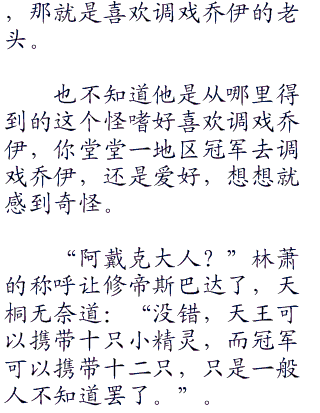 ，那就是喜欢调戏乔伊的老
头。
也不知道他是从哪里得
到的这个怪嗜好喜欢调戏乔
伊，你堂堂一地区冠军去调
戏乔伊，还是爱好，想想就
感到奇怪。
“阿戴克大人？”林萧
的称呼让修帝斯巴达了，天
桐无奈道：“没错，天王可
以携带十只小精灵，而冠军
可以携带十二只，只是一般
人不知道罢了。”。